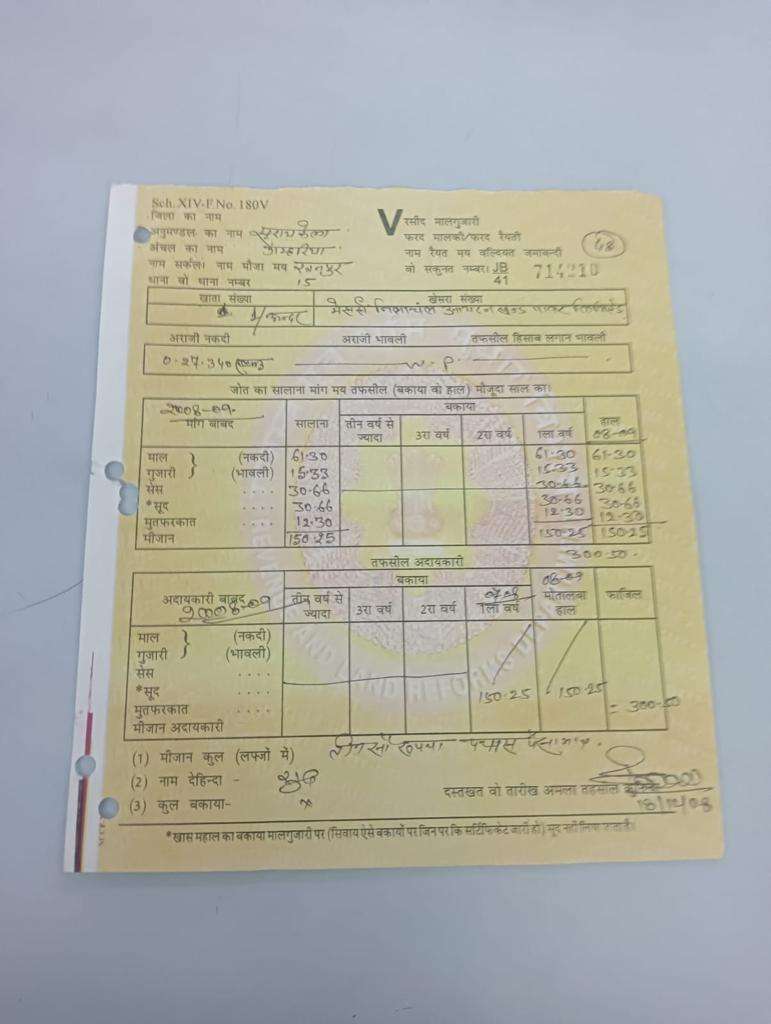 Sch. XIV-F No. 180V
जिला का नाम
अनुमण्डल का नाम सरायकेला
अंचल का नाम
नाम सर्कल। नाम मौजा मय
थाना वो थाना नम्बर 15
V रसीद मालगुजारी
फरद मालकी/फरद रैयती
नाम रैयत मय वल्दियत जमाबन्दी
वो सकुनत नम्बर। JB 41 714210
48
खाता संख्या
खेसरा संख्या
मेसर्स
अराजी नकदी अराजी भावली तफसील हिसाब लगान भावली
0.27.340
जोत का सालाना मांग मय तफसील (बकाया वो हाल) मौजूदा साल का।
2008-09. मांग बाबद सालाना बकाया हाल 08-09
तीन वर्ष से ज्यादा 3रा वर्ष 2रा वर्ष 1ला वर्ष
माल (नकदी) 61.30 61.30 61.30
गुजारी (भावली) 15.33 15.33 15.33
सेस .... 30.66 30.66 30.66
*सूद .... 30.66 30.66 30.66
मुतफरकात 12.30 12.30 12.33
मीजान 150.25 150.25 150.25
300.50.
तफसील अदायकारी
अदायकारी बाबद 2008-09 बकाया 08-09 मोतालबा हाल फाजिल
तीन वर्ष से ज्यादा 3रा वर्ष 2रा वर्ष 1ला वर्ष
माल (नकदी)
गुजारी (भावली)
सेस ....
*सूद .... 150.25 150.25
मुतफरकात .... = 300-50
मीजान अदायकारी
(1) मीजान कुल (लफ्जों में) तीन सौ रुपया पचास पैसा मात्र.
(2) नाम देहिन्दा -
(3) कुल बकाया- ×
दस्तखत वो तारीख अमला तहसील
18/12/08
*खास महाल का बकाया मालगुजारी पर (सिवाय ऐसे बकायों पर जिन पर कि सर्टिफिकेट जारी हो) सूद नहीं लिया जाता है।